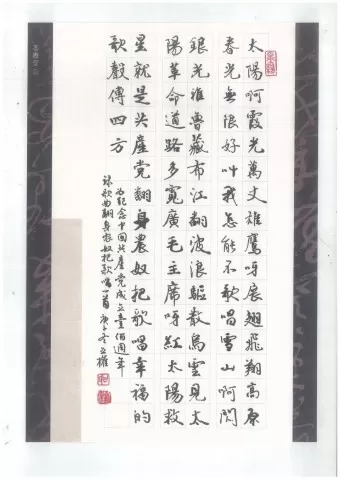 太陽啊霞光萬丈雄鷹呀展翅飛翔高原
春光無限好叫我怎能不歌唱雪山啊閃
銀光雅魯藏布江翻波浪驅散烏雲見太
陽革命道路多寬廣毛主席呀紅太陽救
星就是共產党翻身農奴把歌唱幸福的
歌聲傳四方
为紀念中國共產党成立壹佰週年
錄歌曲翻身农奴把歌唱一首 庚子冬